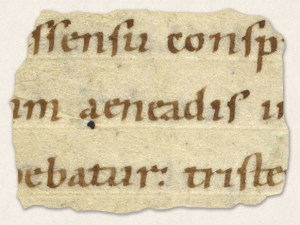 ssensu consp
um aeneadis i
ebatur: triste